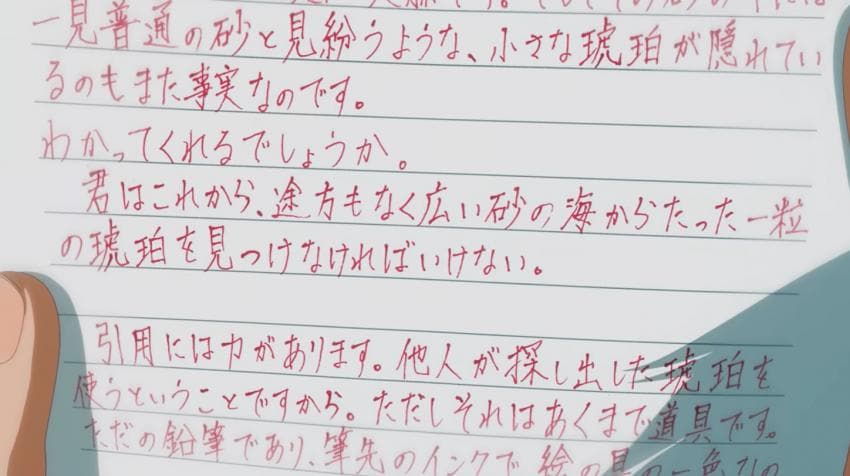 一見普通の砂と見紛うような、小さな琥珀が隠れてい
るのもまた事実なのです。
わかってくれるでしょうか。
君はこれから、途方もなく広い砂の海からたった一粒
の琥珀を見つけなければいけない。
引用には力があります。他人が探し出した琥珀を
使うということですから。ただしそれはあくまで道具です。
ただの鉛筆であり、筆先のインクで絵の具の一色なの